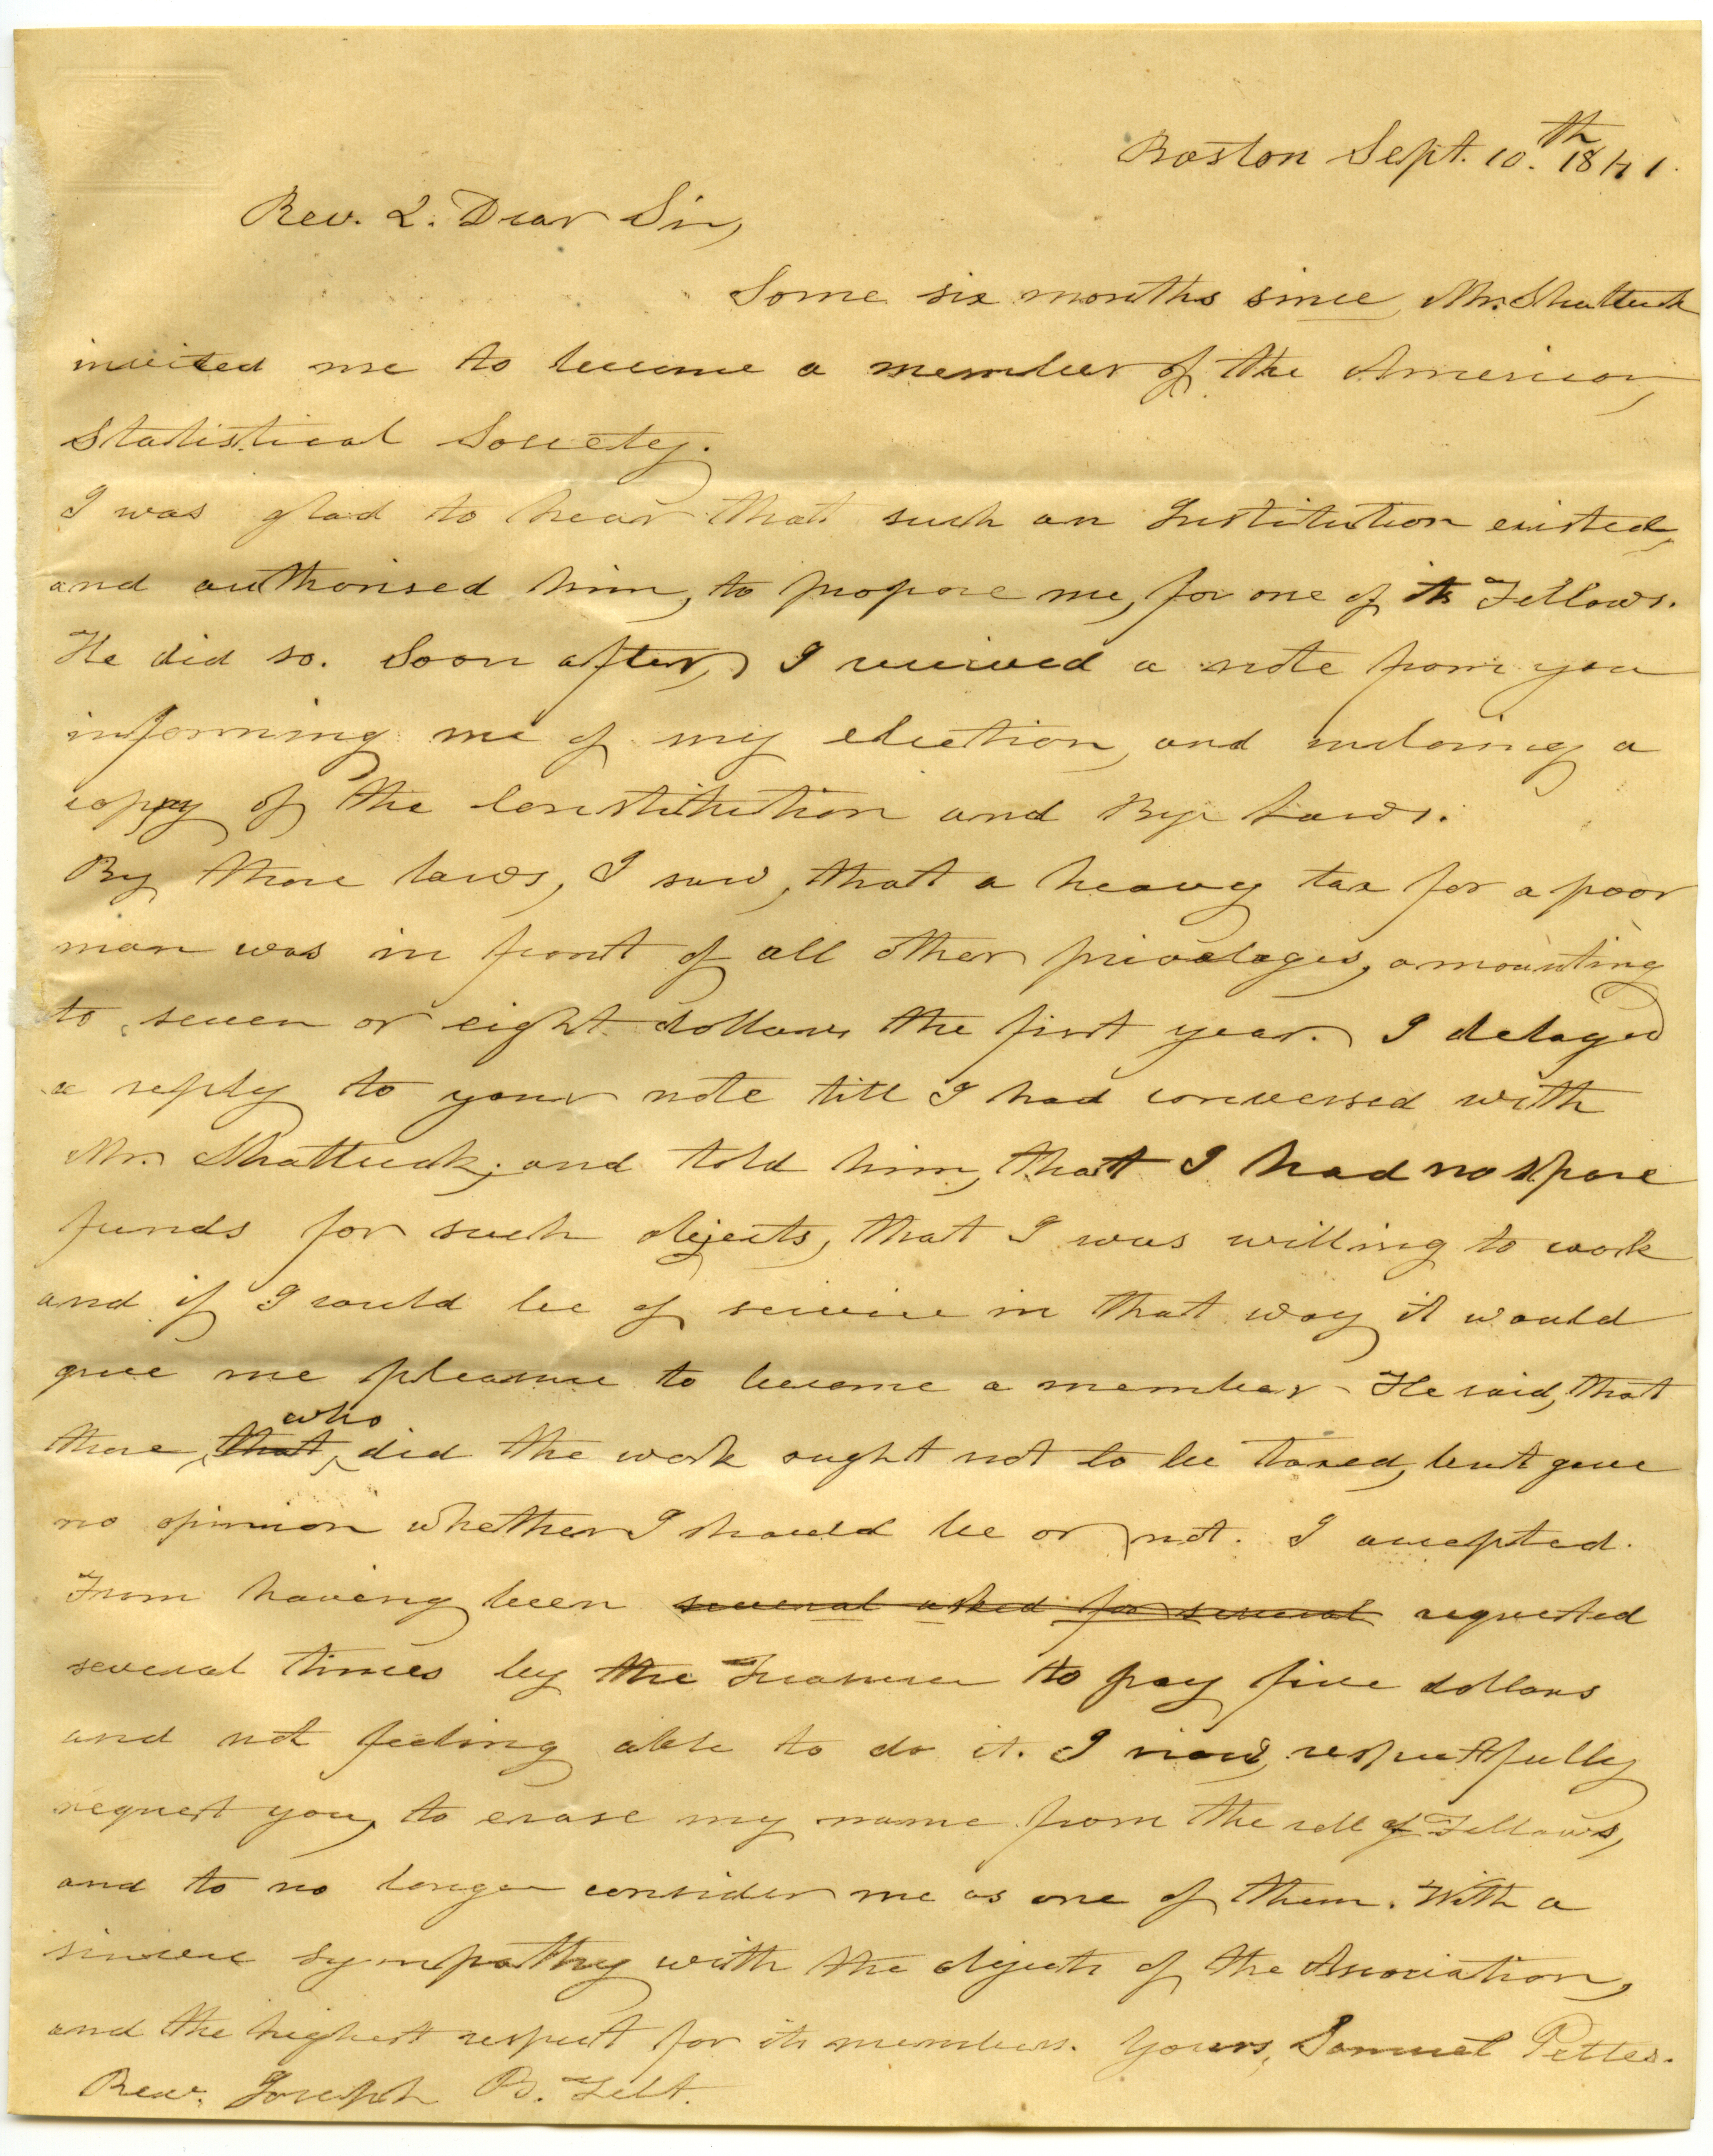 Boston Sept. 10.th 1841.
Rev. & Dear Sir,
Some six months since, Mr. Shattuck
invited me to become a member of the American
Statistical Society.
I was glad to hear that such an Institution existed,
and authorised him, to propose me, for one of its Fellows.
He did so. Soon after, I received a note from you
informing me of my election, and inclosing a
copy of the Constitution and Bye Laws.
By those laws, I saw, that a heavy tax for a poor
man was in front of all other privaleges, amounting
to seven or eight dollars the first year. I delayed
a reply to your note till I had conversed with
Mr. Shattuck; and told him, that I had no spare
funds for such objects, that I was willing to work
and if I could be of service in that way it would
give me pleasure to become a member - He said, that
who
those, that, did the work ought not to be taxed, but gave
no opinion whether I should be or not. I accepted.
From having been several asked for several requested
several times by the Treasurer to pay five dollars
and not feeling able to do it. I now, respectfully
request you, to erase my name from the roll of Fellows,
and to no longer consider me as one of them. With a
sincere sympathy with the objects of the Association,
and the highest respect for its members. Yours, Samuel Pettes.
Rev. Joseph B. Felt.